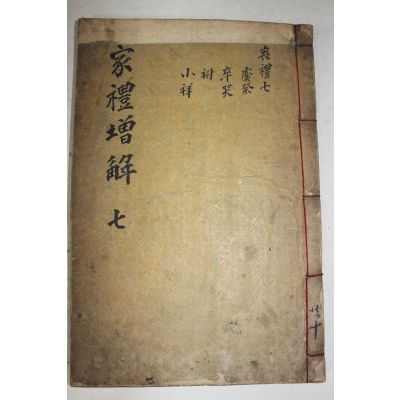 喪禮七
虞祭
卒哭
祔
小祥
家禮增觧 七
共十